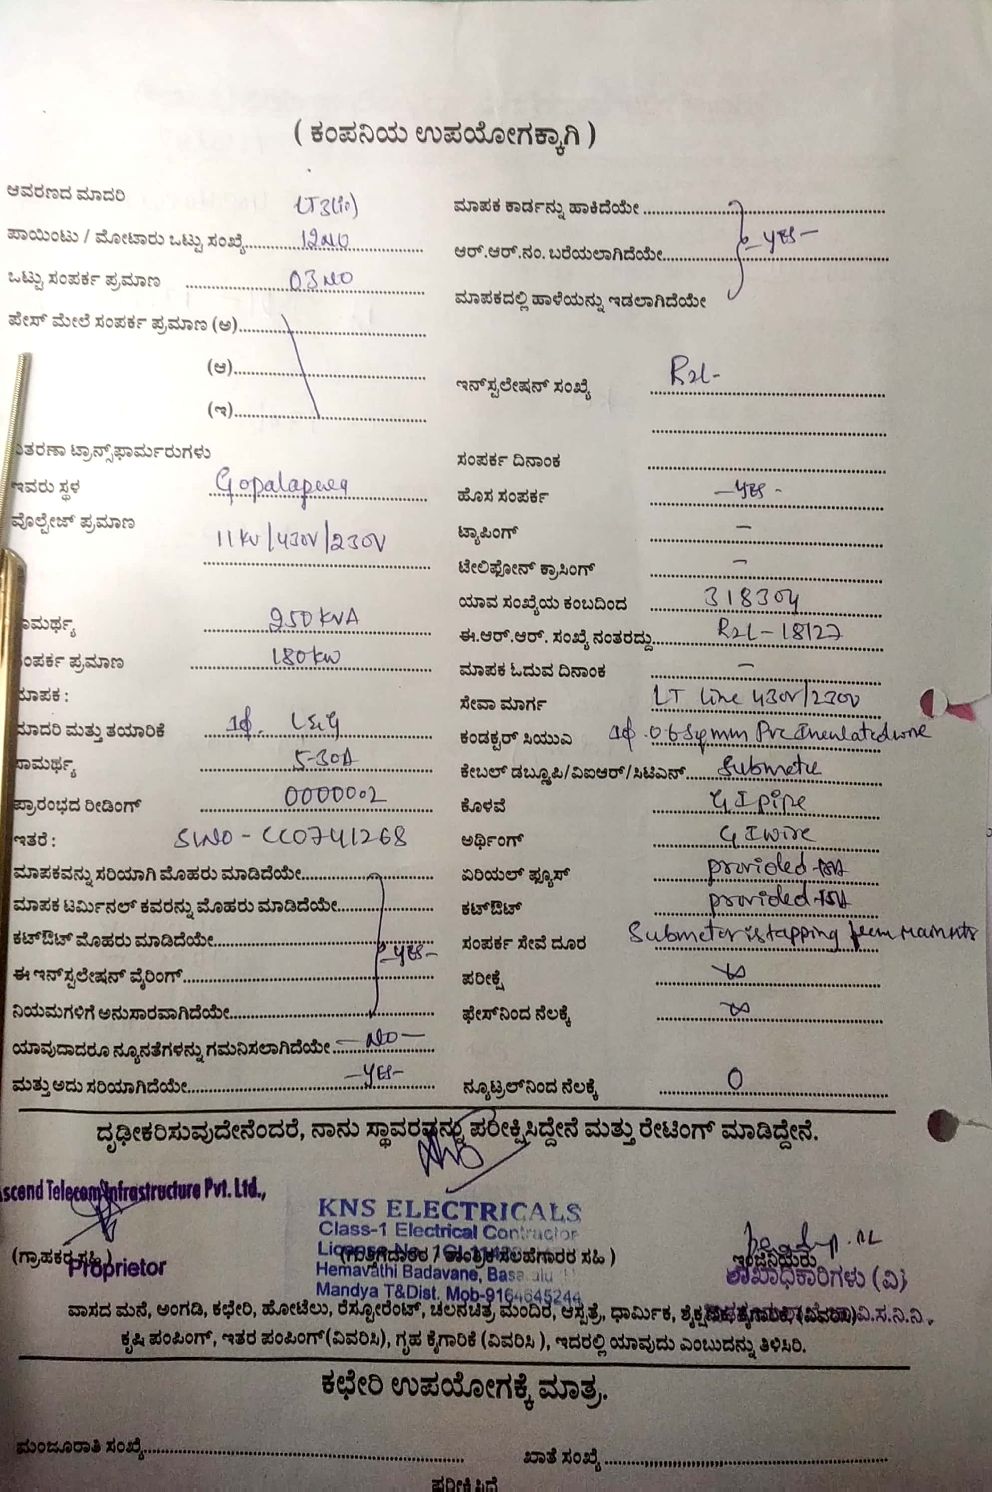 ( ಕಂಪನಿಯ ಉಪಯೋಗಕ್ಕಾಗಿ )
ಆವರಣದ ಮಾದರಿ LT3(ii)
ಪಾಯಿಂಟು / ಮೋಟಾರು ಒಟ್ಟು ಸಂಖ್ಯೆ 12NO
ಒಟ್ಟು ಸಂಪರ್ಕ ಪ್ರಮಾಣ 03NO
ಪೇಸ್ ಮೇಲೆ ಸಂಪರ್ಕ ಪ್ರಮಾಣ (ಅ)
(ಆ)
(ಇ)
ತರಣಾ ಟ್ರಾನ್ಸ್‌ಫಾರ್ಮರುಗಳು
ಇವರು ಸ್ಥಳ Gopalapura
ವೊಲ್ಟೇಜ್ ಪ್ರಮಾಣ 11KV/430V/230V
ಸಾಮರ್ಥ್ಯ 250KVA
ಸಂಪರ್ಕ ಪ್ರಮಾಣ 180KW
ಮಾಪಕ :
ಮಾದರಿ ಮತ್ತು ತಯಾರಿಕೆ 1ϕ. L&G
ಸಾಮರ್ಥ್ಯ 5-30A
ಪ್ರಾರಂಭದ ರೀಡಿಂಗ್ 0000002
ಇತರೆ : SLNO - CC0741268
ಮಾಪಕವನ್ನು ಸರಿಯಾಗಿ ಮೊಹರು ಮಾಡಿದೆಯೇ
ಮಾಪಕ ಟರ್ಮಿನಲ್ ಕವರನ್ನು ಮೊಹರು ಮಾಡಿದೆಯೇ
ಕಟ್‌ಔಟ್ ಮೊಹರು ಮಾಡಿದೆಯೇ
-YES-
ಈ ಇನ್‌ಸ್ಟಲೇಷನ್ ವೈರಿಂಗ್
ನಿಯಮಗಳಿಗೆ ಅನುಸಾರವಾಗಿದೆಯೇ
ಯಾವುದಾದರೂ ನ್ಯೂನತೆಗಳನ್ನು ಗಮನಿಸಲಾಗಿದೆಯೇ -NO-
ಮತ್ತು ಅದು ಸರಿಯಾಗಿದೆಯೇ -YES-
ಮಾಪಕ ಕಾರ್ಡನ್ನು ಹಾಕಿದೆಯೇ
-YES-
ಆರ್.ಆರ್.ನಂ. ಬರೆಯಲಾಗಿದೆಯೇ
ಮಾಪಕದಲ್ಲಿ ಹಾಳೆಯನ್ನು ಇಡಲಾಗಿದೆಯೇ
ಇನ್‌ಸ್ಟಲೇಷನ್ ಸಂಖ್ಯೆ R2L-
ಸಂಪರ್ಕ ದಿನಾಂಕ
ಹೊಸ ಸಂಪರ್ಕ -YES-
ಟ್ಯಾಪಿಂಗ್ -
ಟೇಲಿಫೋನ್ ಕ್ರಾಸಿಂಗ್ -
ಯಾವ ಸಂಖ್ಯೆಯ ಕಂಬದಿಂದ 318304
ಈ.ಆರ್.ಆರ್. ಸಂಖ್ಯೆ ನಂತರದ್ದು R2L-18127
ಮಾಪಕ ಓದುವ ದಿನಾಂಕ -
ಸೇವಾ ಮಾರ್ಗ LT line 430V/230V
ಕಂಡಕ್ಟರ್ ಸಿಯುಎ 1ϕ. 06 Sqmm Pvc Insulated wire
ಕೇಬಲ್ ಡಬ್ಲೂಪಿ/ವಿಐಆರ್/ಸಿಟಿಎನ್ Submetre
ಕೊಳವೆ GI pipe
ಅರ್ಥಿಂಗ್ GI wire
ಏರಿಯಲ್ ಫ್ಯೂಸ್ provided-15A
ಕಟ್‌ಔಟ್ provided-15A
ಸಂಪರ್ಕ ಸೇವೆ ದೂರ Submeter is tapping from main mtr
ಪರೀಕ್ಷೆ ∞
ಫೇಸ್‌ನಿಂದ ನೆಲಕ್ಕೆ ∞
ನ್ಯೂಟ್ರಲ್‌ನಿಂದ ನೆಲಕ್ಕೆ 0
ದೃಢೀಕರಿಸುವುದೇನೆಂದರೆ, ನಾನು ಸ್ಥಾವರವನ್ನು ಪರೀಕ್ಷಿಸಿದ್ದೇನೆ ಮತ್ತು ರೇಟಿಂಗ್ ಮಾಡಿದ್ದೇನೆ.
Ascend Telecom Infrastructure Pvt. Ltd.,
(ಗ್ರಾಹಕರ ಸಹಿ)
Proprietor
KNS ELECTRICALS
Class-1 Electrical Contractor
Hemavathi Badavane,
Mandya T&Dist. Mob-9164645244
ಇಂಜಿನಿಯರು
ಶಾಖಾಧಿಕಾರಿಗಳು (ವಿ)
ವಾಸದ ಮನೆ, ಅಂಗಡಿ, ಕಛೇರಿ, ಹೋಟೆಲು, ರೆಸ್ಟೋರೆಂಟ್, ಚಲನಚಿತ್ರ ಮಂದಿರ, ಆಸ್ಪತ್ರೆ, ಧಾರ್ಮಿಕ,
ಕೃಷಿ ಪಂಪಿಂಗ್, ಇತರ ಪಂಪಿಂಗ್(ವಿವರಿಸಿ), ಗೃಹ ಕೈಗಾರಿಕೆ (ವಿವರಿಸಿ ), ಇದರಲ್ಲಿ ಯಾವುದು ಎಂಬುದನ್ನು ತಿಳಿಸಿರಿ.
ಕಛೇರಿ ಉಪಯೋಗಕ್ಕೆ ಮಾತ್ರ.
ಮಂಜೂರಾತಿ ಸಂಖ್ಯೆ
ಖಾತೆ ಸಂಖ್ಯೆ
ಪರೀಕ್ಷಿಸಿದೆ